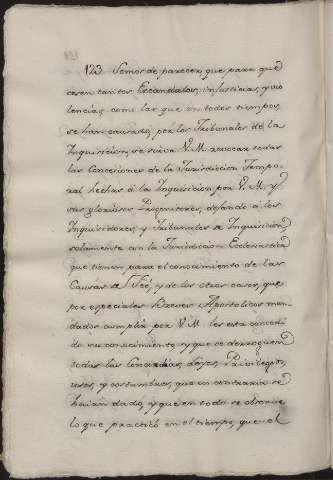 123 Somos de parecer, que para que
cesen tantos Escandalos, injusticias, y vio
lencias como las que en todos tiempos
se han causado, por los Tribunales de la
Inquisicion, se sirva V.M. revocar todas
las Concesiones de la Jurisdiccion Tempo-
ral hechas á la Inquisicion por V. M. y
sus gloriosos Progenitores, dejando á los
Inquisidores, y Tribunales de Inquisicion,
solamente con la Jurisdiccion Eclesiastica
que tienen para el conocimiento de las
Causas de Feé, y de los otros casos, que
por especiales Breves Apostolicos man
dados cumplir por V. M. les esta concedi
do su conocimiento, y que se deroguen
todas las Concordias, Leyes, Privilegios,
usos, y costumbres, que en contrario se
haian dado, y que en todo se observe
lo que practicó en el tiempo, que el